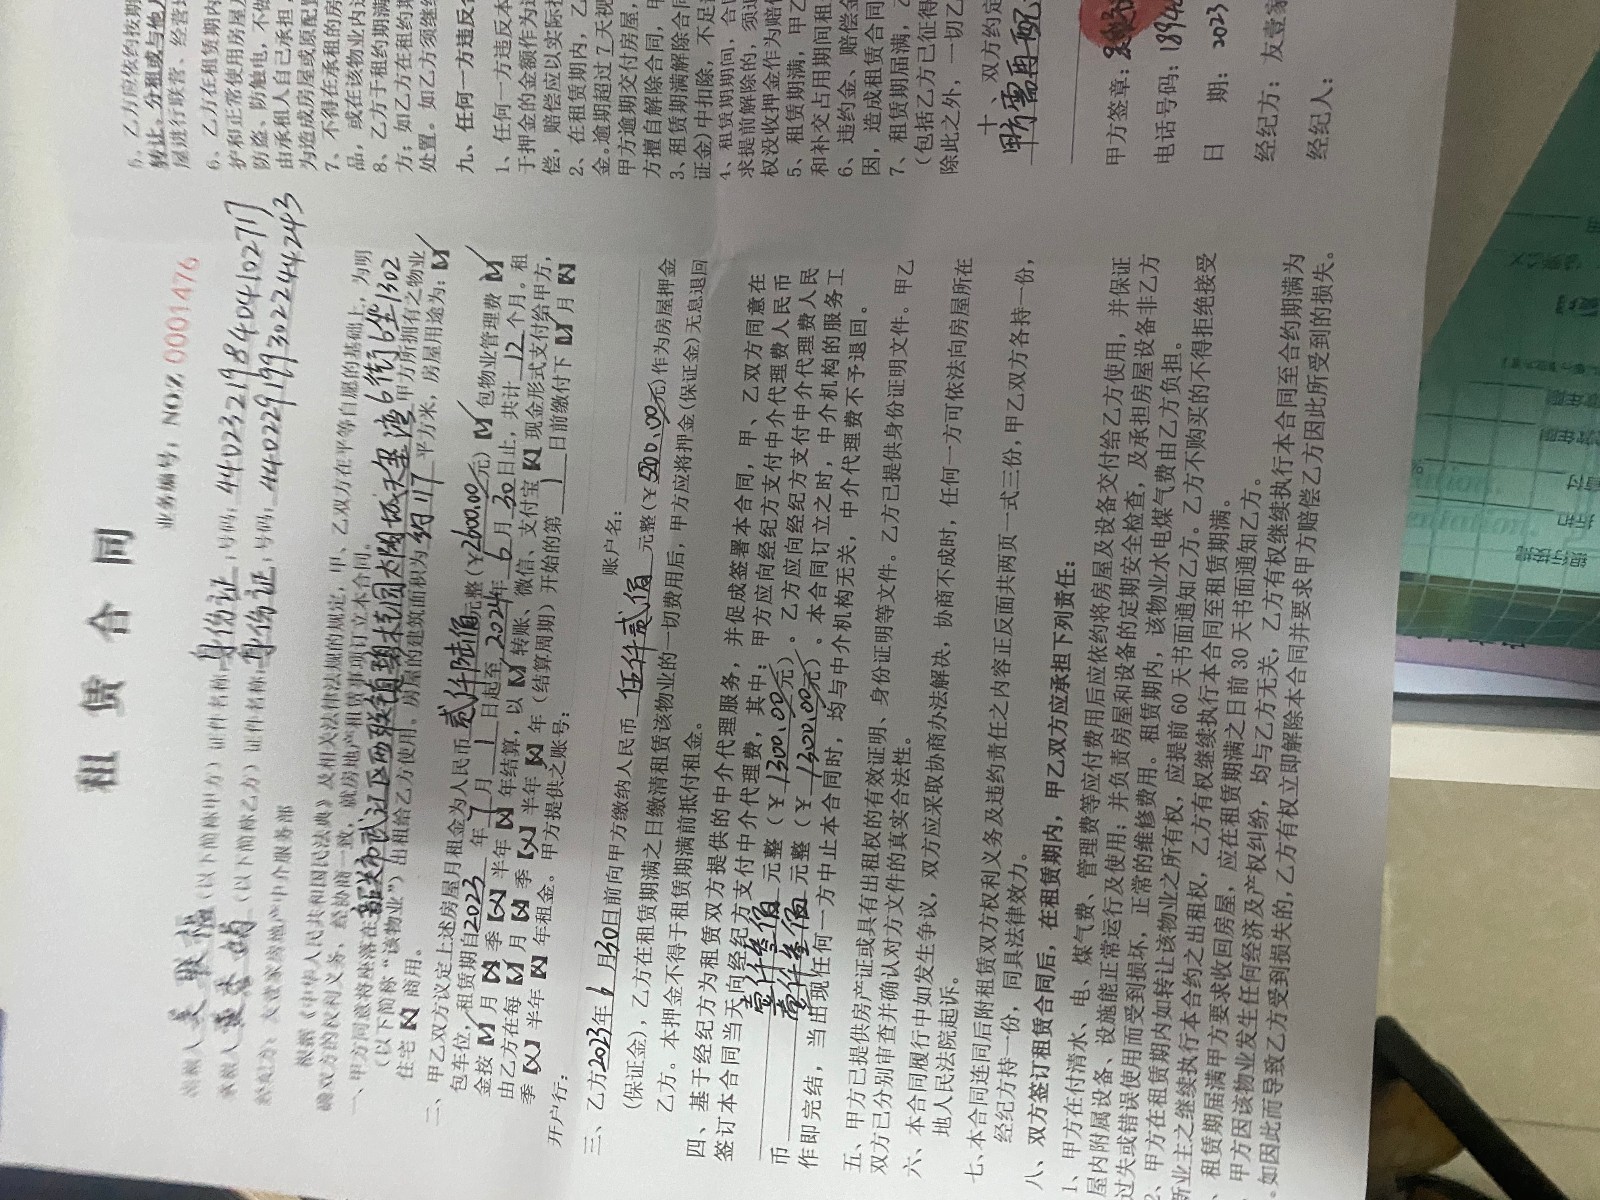 租赁合同
业务编号：NO.Z 0001476
(以下简称甲方) 证件名称:身份证；号码：440232198404102717
(以下简称乙方) 证件名称:身份证；号码：440229199302244243
根据《中华人民共和国民法典》及相关法律法规的规定，甲、乙双方在平等自愿的基础上，为明
确双方的权利义务，经协商一致，就房地产租赁事项订立本合同。
一、甲方同意将座落在韶关市武江区西联镇 6街6坐1302 甲方所拥有之物业
(以下简称“该物业”) 出租给乙方使用。房屋的建筑面积为约117平方米，房屋用途为：
住宅 商用。
二、甲乙双方议定上述房屋月租金为人民币贰仟陆佰元整(￥2600.00元) 包物业管理费
包车位，租赁期自2023年7月1日起至2024年6月30日止，共计12个月。租
金按 月 季 半年 年结算，以 转账、微信、支付宝 现金形式支付给甲方，
由乙方在每 月 季 半年 年 (结算周期) 开始的第1日前缴付下 月
季 半年 年租金。甲方提供之账号：
开户行： 账户名：
三、乙方2023年6月30日前向甲方缴纳人民币伍仟贰佰元整(￥5200.00元)作为房屋押金
(保证金)，乙方在租赁期满之日缴清租赁该物业的一切费用后，甲方应将押金(保证金)无息退回
乙方。本押金不得于租赁期满前抵付租金。
四、基于经纪方为租赁双方提供的中介代理服务，并促成签署本合同，甲、乙双方同意在
签订本合同当天向经纪方支付中介代理费，其中：甲方应向经纪方支付中介代理费人民币
壹仟叁佰元整 (￥1300.00元)。乙方应向经纪方支付中介代理费人民
币壹仟叁佰元整 (￥1300.00元)。本合同订立之时，中介机构的服务工
作即完结，当出现任何一方中止本合同时，均与中介机构无关，中介代理费不予退回。
五、甲方已提供房产证或具有出租权的有效证明、身份证明等文件。乙方已提供身份证明文件。甲乙
双方已分别审查并确认对方文件的真实合法性。
六、本合同履行中如发生争议，双方应采取协商办法解决，协商不成时，任何一方可依法向房屋所在
地人民法院起诉。
七、本合同连同后附租赁双方权利义务及违约责任之内容正反面共两页一式三份，甲乙双方各持一份，
经纪方持一份，同具法律效力。
八、双方签订租赁合同后，在租赁期内，甲乙双方应承担下列责任：
1、甲方在付清水、电、煤气费、管理费等应付费用后应依约将房屋及设备交付给乙方使用，并保证
屋内附属设备、设施能正常运行及使用；并负责房屋和设备的定期安全检查，及承担房屋设备非乙方
过失或错误使用而受到损坏，正常的维修费用。租赁期内，该物业水电煤气费由乙方负担。
2、甲方在租赁期内如转让该物业之所有权，应提前 60 天书面通知乙方。乙方不购买的不得拒绝接受
新业主之继续执行本合约之出租权，乙方有权继续执行本合同至租赁期满。
、租赁期届满甲方要求收回房屋，应在租赁期满之日前 30 天书面通知乙方。
、甲方因该物业发生任何经济及产权纠纷，均与乙方无关，乙方有权继续执行本合同至合约期满为
。如因此而导致乙方受到损失的，乙方有权立即解除本合同并要求甲方赔偿乙方因此所受到的损失。
5、乙方应依约按期
转让、分租或与他人
屋进行联营、经营
6、乙方在租赁期内
护和正常使用房屋
防盗、防触电，不做
由承租人自己承担，
为造成房屋或原配置
7、不得在承租的房
品，或在该物业内进
8、乙方于租约期满
方；如乙方在租约期
处置。如乙方须继续
九、任何一方违反
1、任何一方违反本
于押金的金额作为违
偿，赔偿应以实际损
2、在租赁期内，乙
金。逾期超过 7 天视
甲方逾期交付房屋，
方擅自解除合同，甲
3、租赁期满解除合同
证金) 中扣除，不足
4、租赁期期间，合
求提前解除的，须
权没收押金作为赔偿
5、租赁期满，甲乙
和补交占用期间租
6、违约金、赔偿金
因，造成租赁合同
7、租赁期届满，乙
(包括乙方已征得
除此之外，一切乙
十、双方约定
甲方需再配
甲方签章：
电话号码：
日 期：2023
经纪方：友壹家
经纪人：